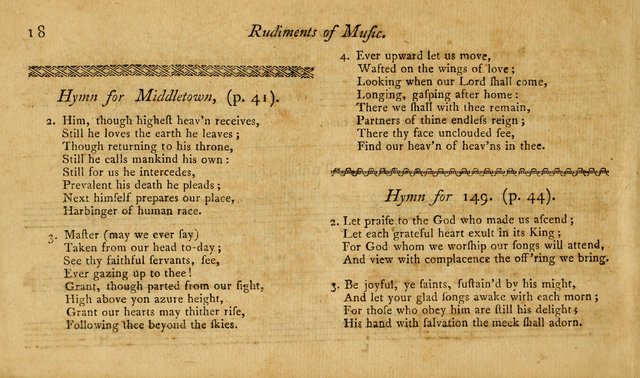 18
Rudiments of Muſic.
Hymn for Middletown, (p. 41).
2. Him, though higheſt heav'n receives,
Still he loves the earth he leaves;
Though returning to his throne,
Still he calls mankind his own:
Still for us he intercedes,
Prevalent his death he pleads;
Next himſelf prepares our place,
Harbinger of human race.
3. Maſter (may we ever ſay)
Taken from our head to-day;
See thy faithful ſervants, ſee,
Ever gazing up to thee!
Grant, though parted from our ſight,
High above yon azure height,
Grant our hearts may thither riſe,
Following thee beyond the ſkies.
4. Ever upward let us move,
Wafted on the wings of love;
Looking when our Lord ſhall come,
Longing, gaſping after home:
There we ſhall with thee remain,
Partners of thine endleſs reign;
There thy face unclouded ſee,
Find our heav'n of heav'ns in thee.
Hymn for 149. (p. 44).
2. Let praiſe to the God who made us aſcend;
Let each grateful heart exult in its King;
For God whom we worſhip our ſongs will attend,
And view with complacence the off'ring we bring.
3. Be joyful, ye ſaints, ſuſtain'd by his might,
And let your glad ſongs awake with each morn;
For thoſe who obey him are ſtill his delight;
His hand with ſalvation the meek ſhall adorn.